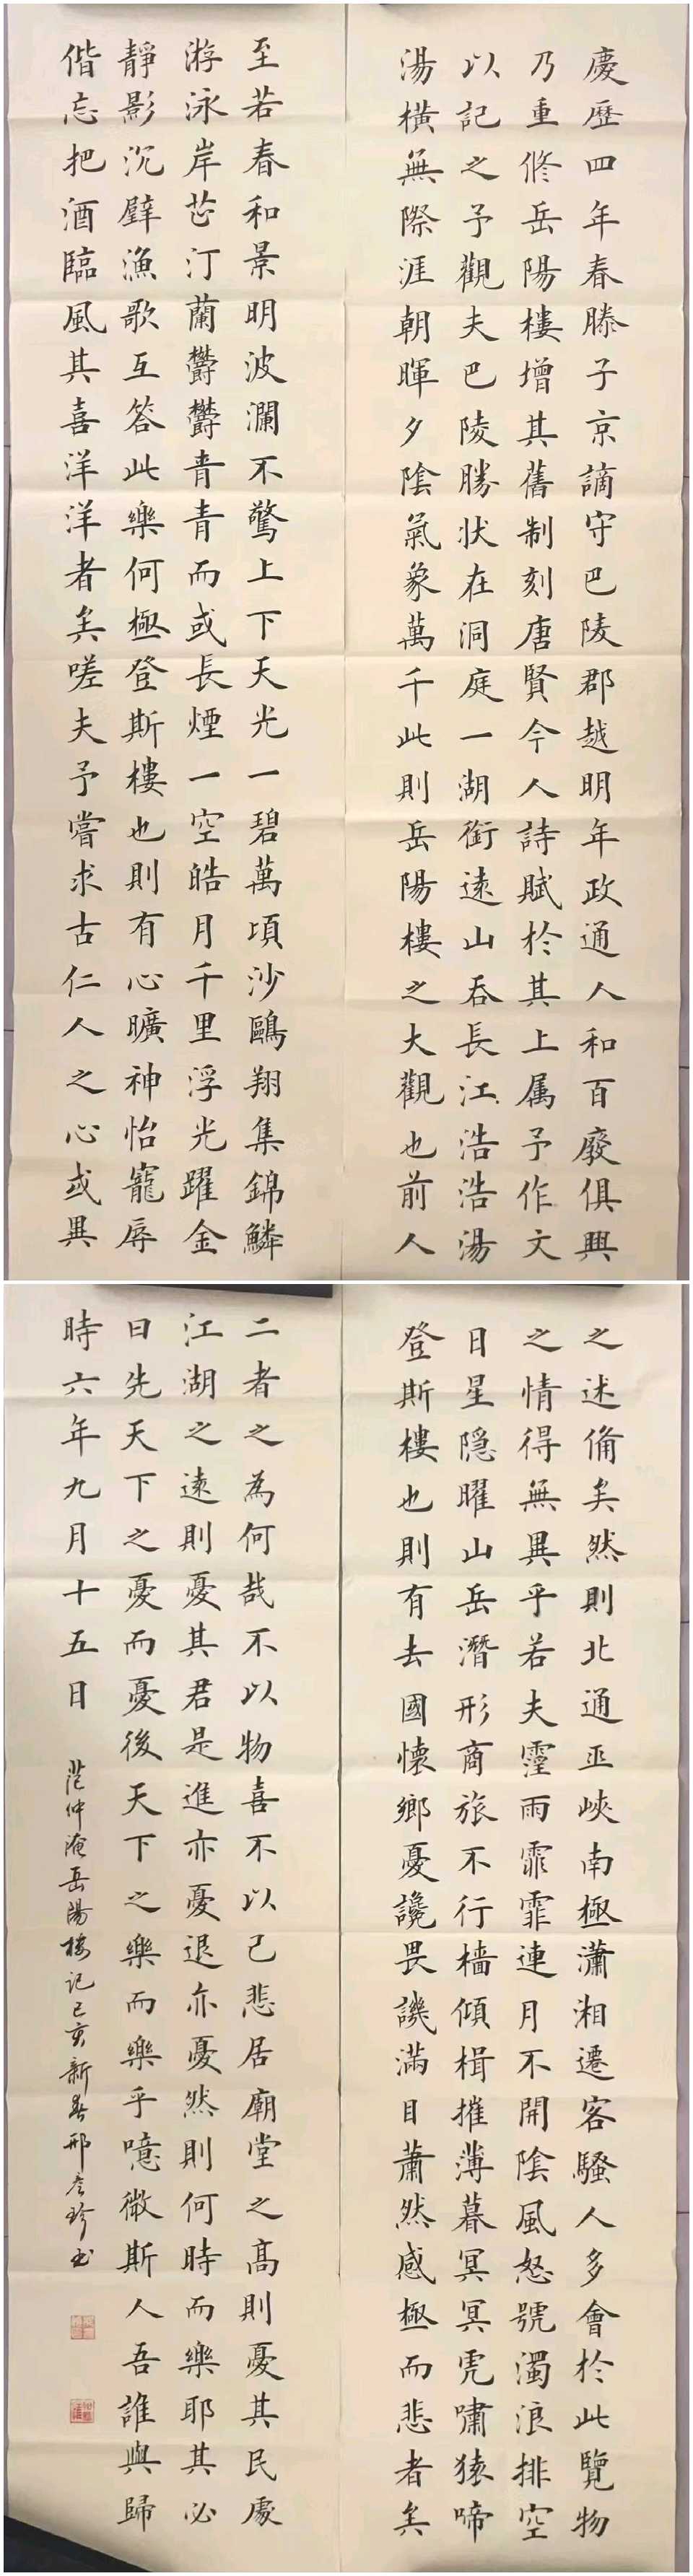 慶歷四年春滕子京謫守巴陵郡越明年政通人和百廢俱興
乃重修岳陽樓增其舊制刻唐賢今人詩賦於其上属予作文
以記之予觀夫巴陵勝狀在洞庭一湖銜遠山吞長江浩浩湯
湯橫無際涯朝暉夕陰氣象萬千此則岳陽樓之大觀也前人
之述備矣然則北通巫峽南極瀟湘遷客騷人多會於此覽物
之情得無異乎若夫霪雨霏霏連月不開陰風怒號濁浪排空
日星隱曜山岳潛形商旅不行檣傾楫摧薄暮冥冥虎嘯猿啼
登斯樓也則有去國懷鄉憂讒畏譏滿目蕭然感極而悲者矣
至若春和景明波瀾不驚上下天光一碧萬頃沙鷗翔集錦鱗
游泳岸芷汀蘭鬱鬱青青而或長煙一空皓月千里浮光躍金
靜影沉璧漁歌互答此樂何極登斯樓也則有心曠神怡寵辱
偕忘把酒臨風其喜洋洋者矣嗟夫予嘗求古仁人之心或異
二者之為何哉不以物喜不以己悲居廟堂之高則憂其民處
江湖之遠則憂其君是進亦憂退亦憂然則何時而樂耶其必
曰先天下之憂而憂後天下之樂而樂乎噫微斯人吾誰與歸
時六年九月十五日 范仲淹岳陽樓记己亥新春邢彥珍书